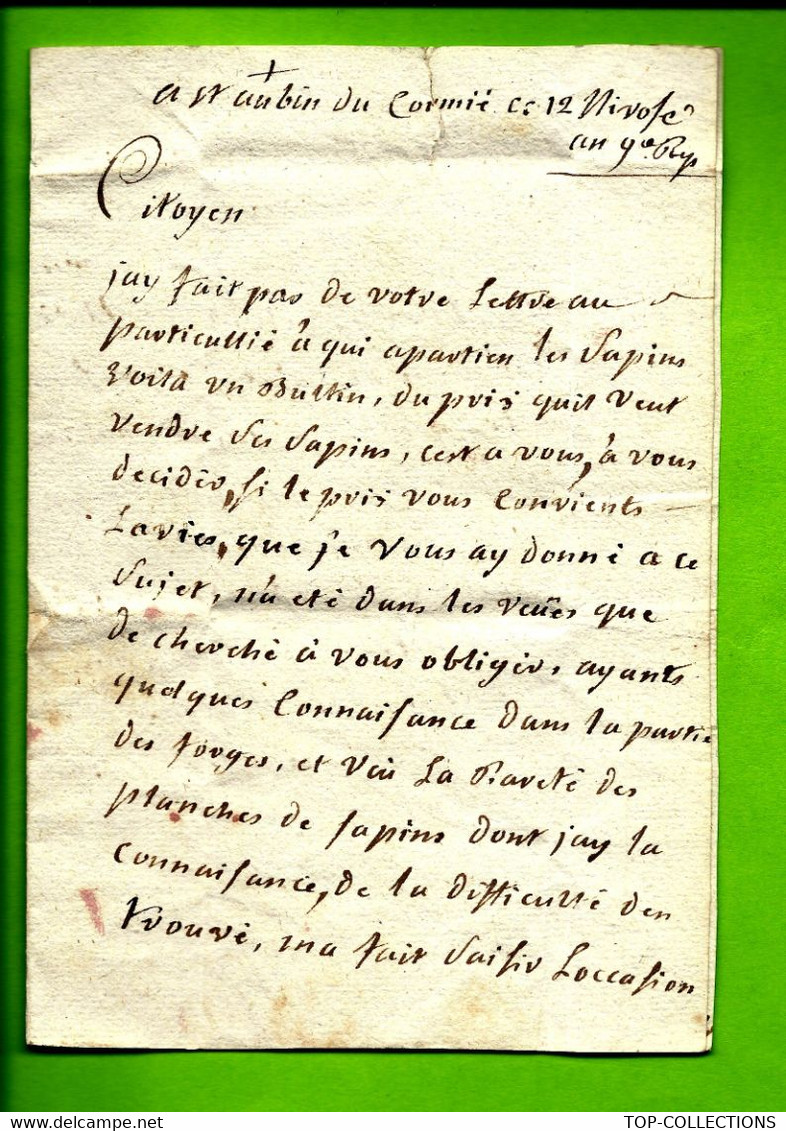 a st aubin du Cormié ce 12 Nivose
an 9e. Rp
Citoyen
jay fait pas de votre Lettre au
particullié à qui apartien les Sapins
Voila un Bultin, du pris quil veut
vendre ses Sapins, cest a vous, à vous
decidér, si le pris vous Convients
Lavies, que je vous ay donné a ce
Sujet, n'a eté dans les veües que
de cherché à vous obligér, ayants
quelques Connaisance dans la partie
des forges, et veü La Rareté des
planches de sapins dont jay la
Connaisance, de la difficulté den
trouvé, ma fait Saisir Loccasion
TOP-COLLECTIONS